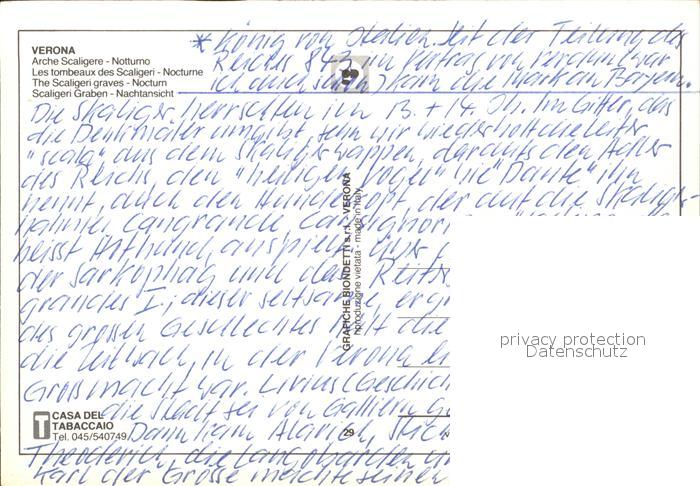 VERONA
Arche Scaligere - Notturno
Les tombeaux des Scaligeri - Nocturne
The Scaligeri graves - Nocturn
Scaligeri Graben - Nachtansicht
* König von Italien. Seit der Teilung des
Reichs 843 im Vertrag von Verdun war
kam die Mark an Bayern.
Die Skaliger herrschten im 13. + 14. Jh. Im Gitter, das
die Denkmäler umgibt, sehn wir wiederholt die Leiter
"scala" aus dem Skaligerwappen, darauf den Adler
des Reichs, den "heiligen Vogel" wie "Dante" ihn
nennt, auch den Hundekopf, der auf die Skaliger-
namen Cangrande, Cansignorio
heisst Hund, anspielt.
der Sarkophag und das Reiter
grandes I; dieser seltsame,
des grossen Geschlechtes hält die
die Zeit wach, in der Verona
Grossmacht war. Livius (Geschich
die Stadt sei von Galliern
Dann kam Alarich,
Theoderich, die Langobarden
Karl der Grosse machte seinen
GRAFICHE BIONDETTI s.r.l. - VERONA
riproduzione vietata - made in Italy
CASA DEL
TABACCAIO
Tel. 045/540749
29
privacy protection
Datenschutz